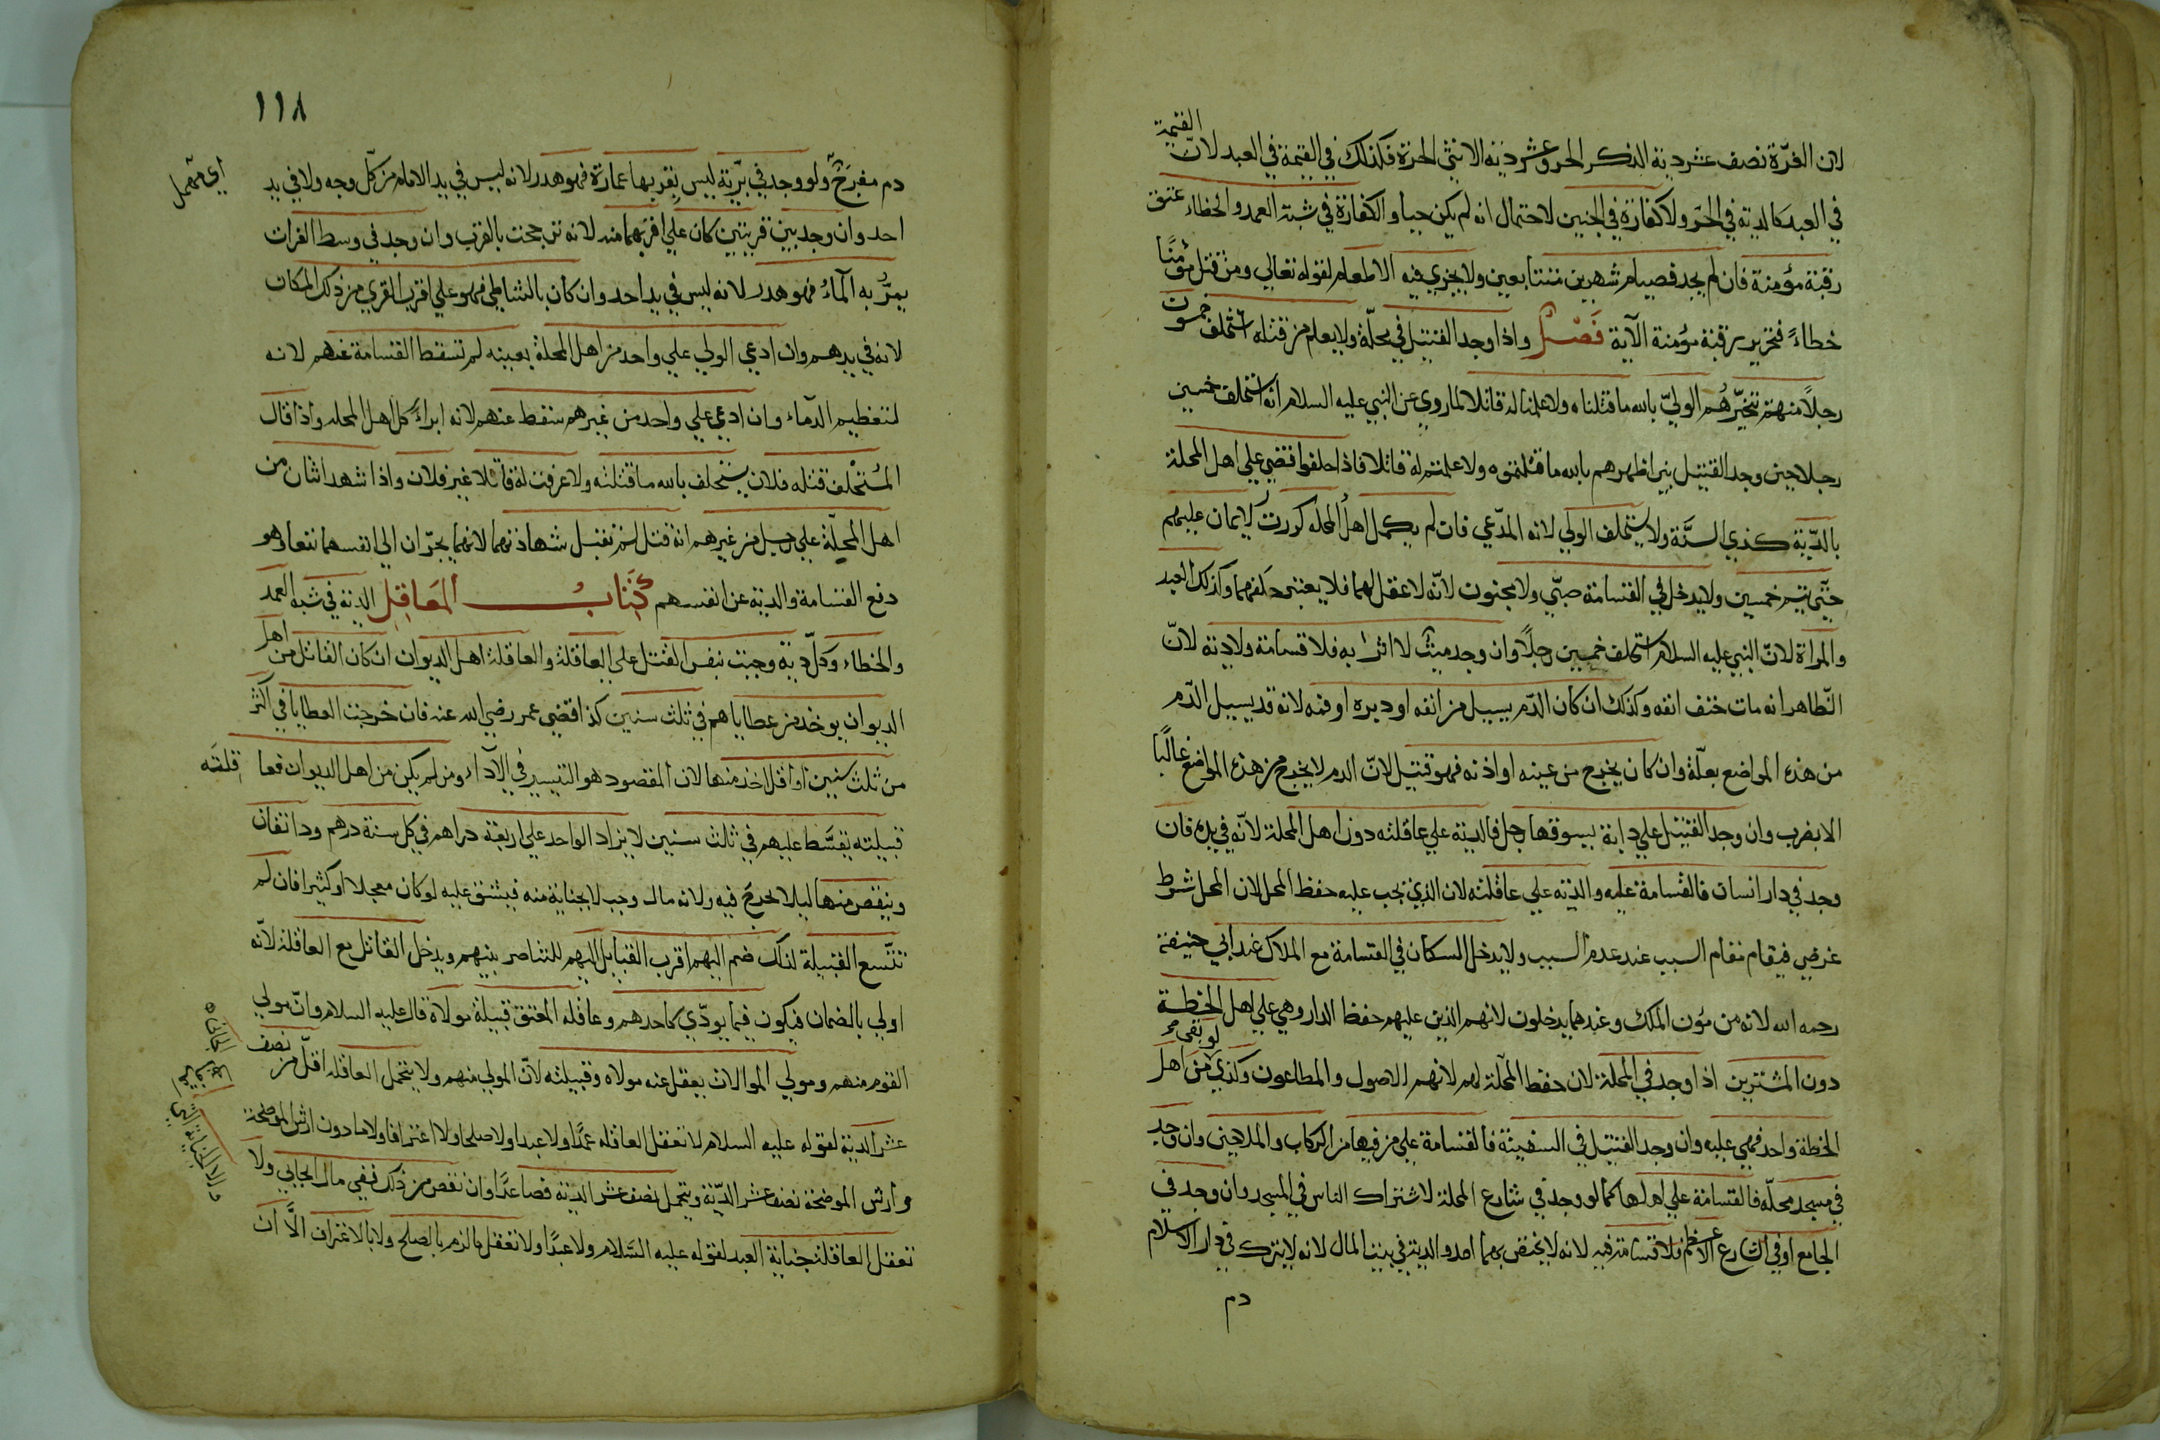 لان الغرّة نصف عشر دية الذكر الحر وعشر دية الانثى الحرة فكذلك في القيمة في العبد لانّ القيمة
في العبد كالدية في الحر ولا كفارة في الجنين لاحتمال انه لم يكن حيا والكفارة في شبه العمد والخطاء عتق
رقبة مؤمنة فان لم يجد فصيام شهرين متتابعين ولا يجزي فيه الاطعام لقوله تعالي ومن قتل مؤمنًا
خطاءً فتحرير رقبة مؤمنة الآية فَصْل واذا وجد القتيل في محلّة ولا يعلم من قتله استحلف خمسون
رجلاً منهم يتخيّرهُم الوليّ بالله ما قتلناه ولا علمنا له قاتلا لما روي عن النبي عليه السلام انه استحلف خمسين
رجلا حين وجد القتيل بين اظهرهم بالله ما قتلتموه ولا علمتم له قاتلا فاذا حلفوا قضي علي اهل المحلة
بالدّية كذي السنّة ولا يستحلف الولي لانه المدّعي فان لم يكمل اهل المحله كررت الايمان عليهم
حتّى يتم خمسين ولا يدخل في القسامة صبّي ولا مجنون لانّه لا عقل لهما فلا يعتبر حلفهما وكذلك العبد
والمراة لانّ النبي عليه السلام استحلف خمسين رجلاً وان وجد ميت لا اثر به فلا قسامة ولا دية لانّ
الظّاهر انه مات حتف انفه وكذلك ان كان الدّم يسيل من انفه او دبره او فمه لانه قد يسيل الدّم
من هذه المواضع بعلّة وان كان يخرج من عينه او اذنه فهو قتيل لانّ الدم لا يخرج من هذه المواضع غالبًا
الا بضرب وان وجد القتيل علي دابة يسوقها رجل فالدية علي عاقلته دون اهل المحلة لانّه في يده فان
وجد في دار انسان فالقسامة عليه والدية علي عاقلته لان الذي يجب عليه حفظ المحل لان المحل شرط
غرضي فيقام مقام السبب عند عدم السبب ولا يدخل السكان في القسامة مع الملاك عند ابي حنيفة
رحمه الله لانه من مؤن الملك وعندهما يدخلون لانهم الذين عليهم حفظ الدار وهي علي اهل الخطة
دون المشترين اذا وجد في المحلة لان حفظ المحلّة لهم لانهم الاصول والمطالعون وكذي لو بقي من اهل
الخطة واحد فهي عليه وان وجد القتيل في السفينة فالقسامة علي من فيها من الركاب والملاحين وان وجد
في مسجد محلّه فالقسامة علي اهلها كما لو وجد في شارع المحلة لاشتراك الناس في المسجد وان وجد في
الجامع او في الشارع الاعظم فلا قسامة فيه لانه لا يختص بهما احد والدية في بيت المال لانه لا يترك في دار الاسلام
دم
١١٨
دم مفرَجٌ ولو وجد في برّية ليس بقربها عمارة فهو هدر لانه ليس في يد الامام من كلّ وجه ولا في يد
اي مهمل
احد وان وجد بين قريتين كان علي اقربهما منه لانه ترجحت بالقرب وان وجد في وسط الفرات
يمرُّ به المآءُ فهو هدر لانه ليس في يد احد وان كان بالشاطي فهو علي اقرب القري من ذلك المكان
لانه في يدهم وان ادعي الولي علي واحد من اهل المحلة بعينه لم تسقط القسامة عنهم لانه
لتعظيم الدمآء وان ادعي علي واحد من غيرهم سقط عنهم لانه ابراءُ كل اهل المحله واذا قال
المُستحلف قتله فلان يستحلف بالله ما قتلته ولا عرفت له قاتلا غير فلان واذا شهد اثنان من
اهل المحلّة علي رجل من غيرهم انه قتل لم تقبل شهادتهما لانهما يجرّان الي انفسهما نفعا وهو
دفع القسامة والدية عن انفسهم كتابُ المعَاقِل الدية في شبه العمد
والخطاء وكلّ دية وجبت بنفس القتل علي العاقلة والعاقلة اهل الديوان ان كان القاتل من اهل
الديوان يوخذ من عطاياهم في ثلث سنين كذا قضي عمر رضي الله عنه فان خرجت العطايا في اكثر
من ثلث سنين او اقل اخذ منها لان المقصود هو التيسير في الآداء ومن لم يكن من اهل الديوان فعاقلته
قبيلته يقسّط عليهم في ثلاث سنين لا يزاد الواحد علي اربعة دراهم في كل سنة درهم ودانقان
وينقص منها ليلا يحرج فيه ولانه مال وجب لا بجناية منه فيشق عليه لو كان معجلا او كثيرا فان لم
تتّسع القبيلة لذلك ضم اليهم اقرب القبايل اليهم للتناصر بينهم ويدخل القاتل مع العاقلة لانّه
اولي بالضمان فيكون فيما يودّي كاحدهم وعاقله المعتق قبيلة مولاة قال عليه السلام وانّ مولي
القوم منهم ومولي الموالات يعقل عنه مولاه وقبيلته لانّ المولي منهم ولا يتحمل العاقله اقلّ من نصف
عشر الدية لقوله عليه السلام لا تعقل العاقله عمدًا ولا عبدا ولا صلحا ولا اعترافا ولا ما دون ارش الموضحة
وارش الموضحة نصف عشر الدّية ويتحمل نصف عشر الدية فصاعدًا وان نقص من ذلك ففي مال الجاني ولا
تعقل العاقلة جناية العبد لقوله عليه السَّلام ولا عبدًا ولا تعقل ما لزم بالصلح ولا بالاعتراف الَّا ان